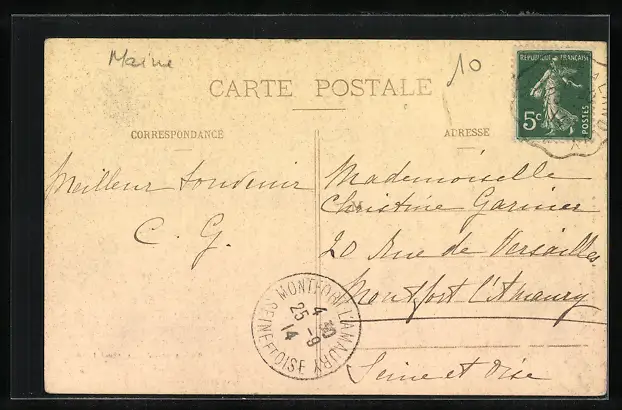 Maine
10
CARTE POSTALE
RÉPUBLIQUE FRANÇAISE
5c
POSTES
CORRESPONDANCE
ADRESSE
Meilleur Souvenir
C. G.
Mademoiselle
Christine Garnier
20 Rue de Versailles
Montfort l'Amaury
Seine et Oise
MONTFORT L'AMAURY
4 30
25 - 9
14
SEINE ET OISE